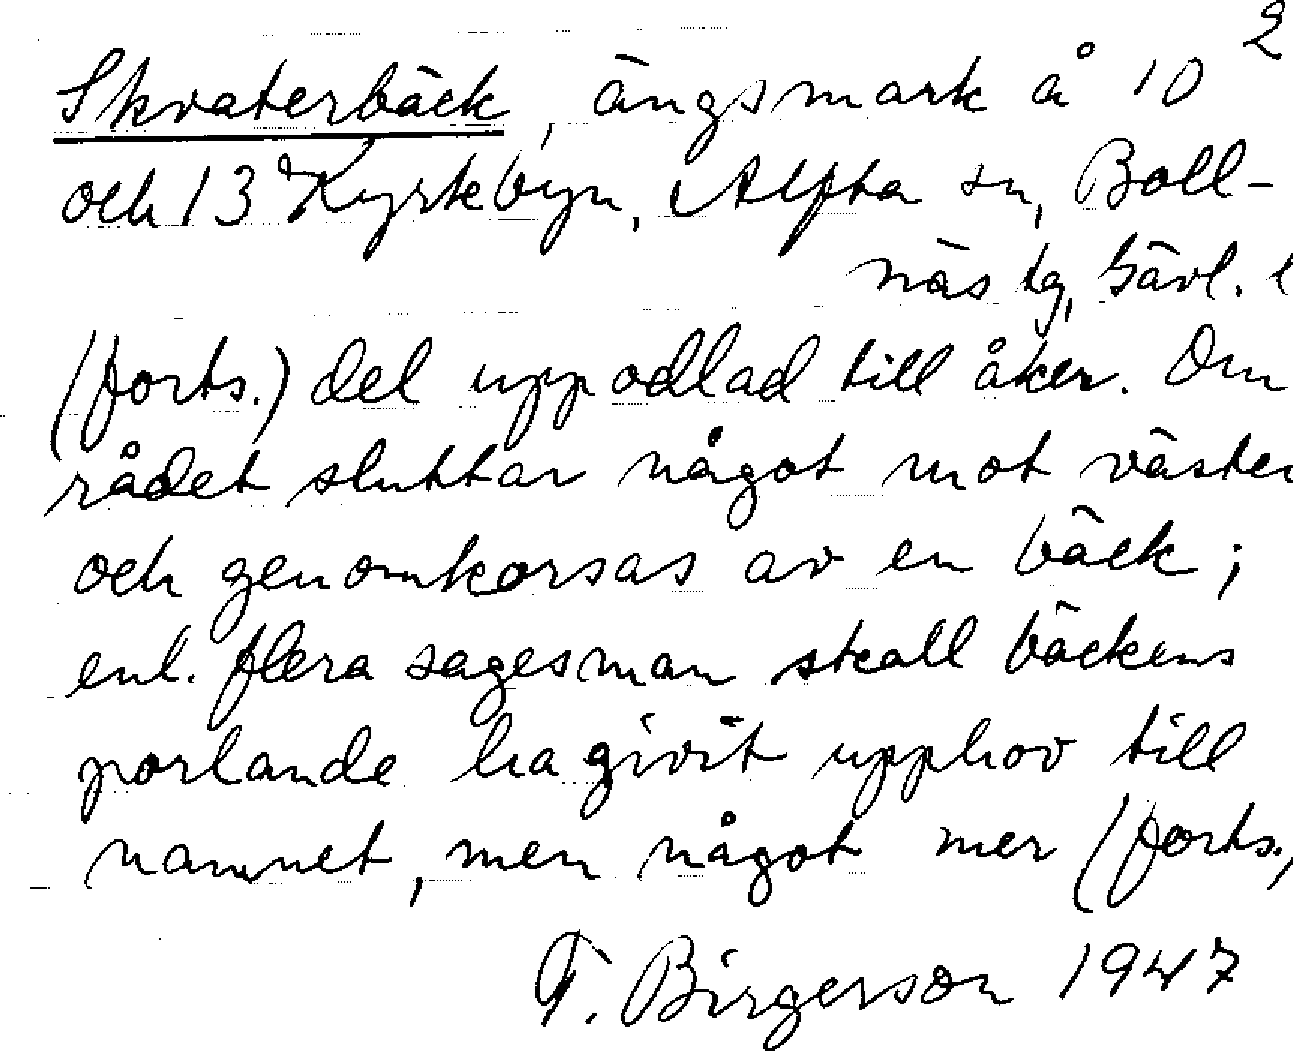 2
Skvaterbäck, ängsmark å 10
och 13 Kyrkbyn, Alfta sn, Boll-
näs tg, Gävl. l
(forts.) del uppodlad till åker. Om
rådet sluttar något mot väster
och genomkorsas av en bäck;
enl. flera sagesman skall bäckens
porlande ha givit upphov till
namnet, men något mer (forts.)
F. Birgerson 1947